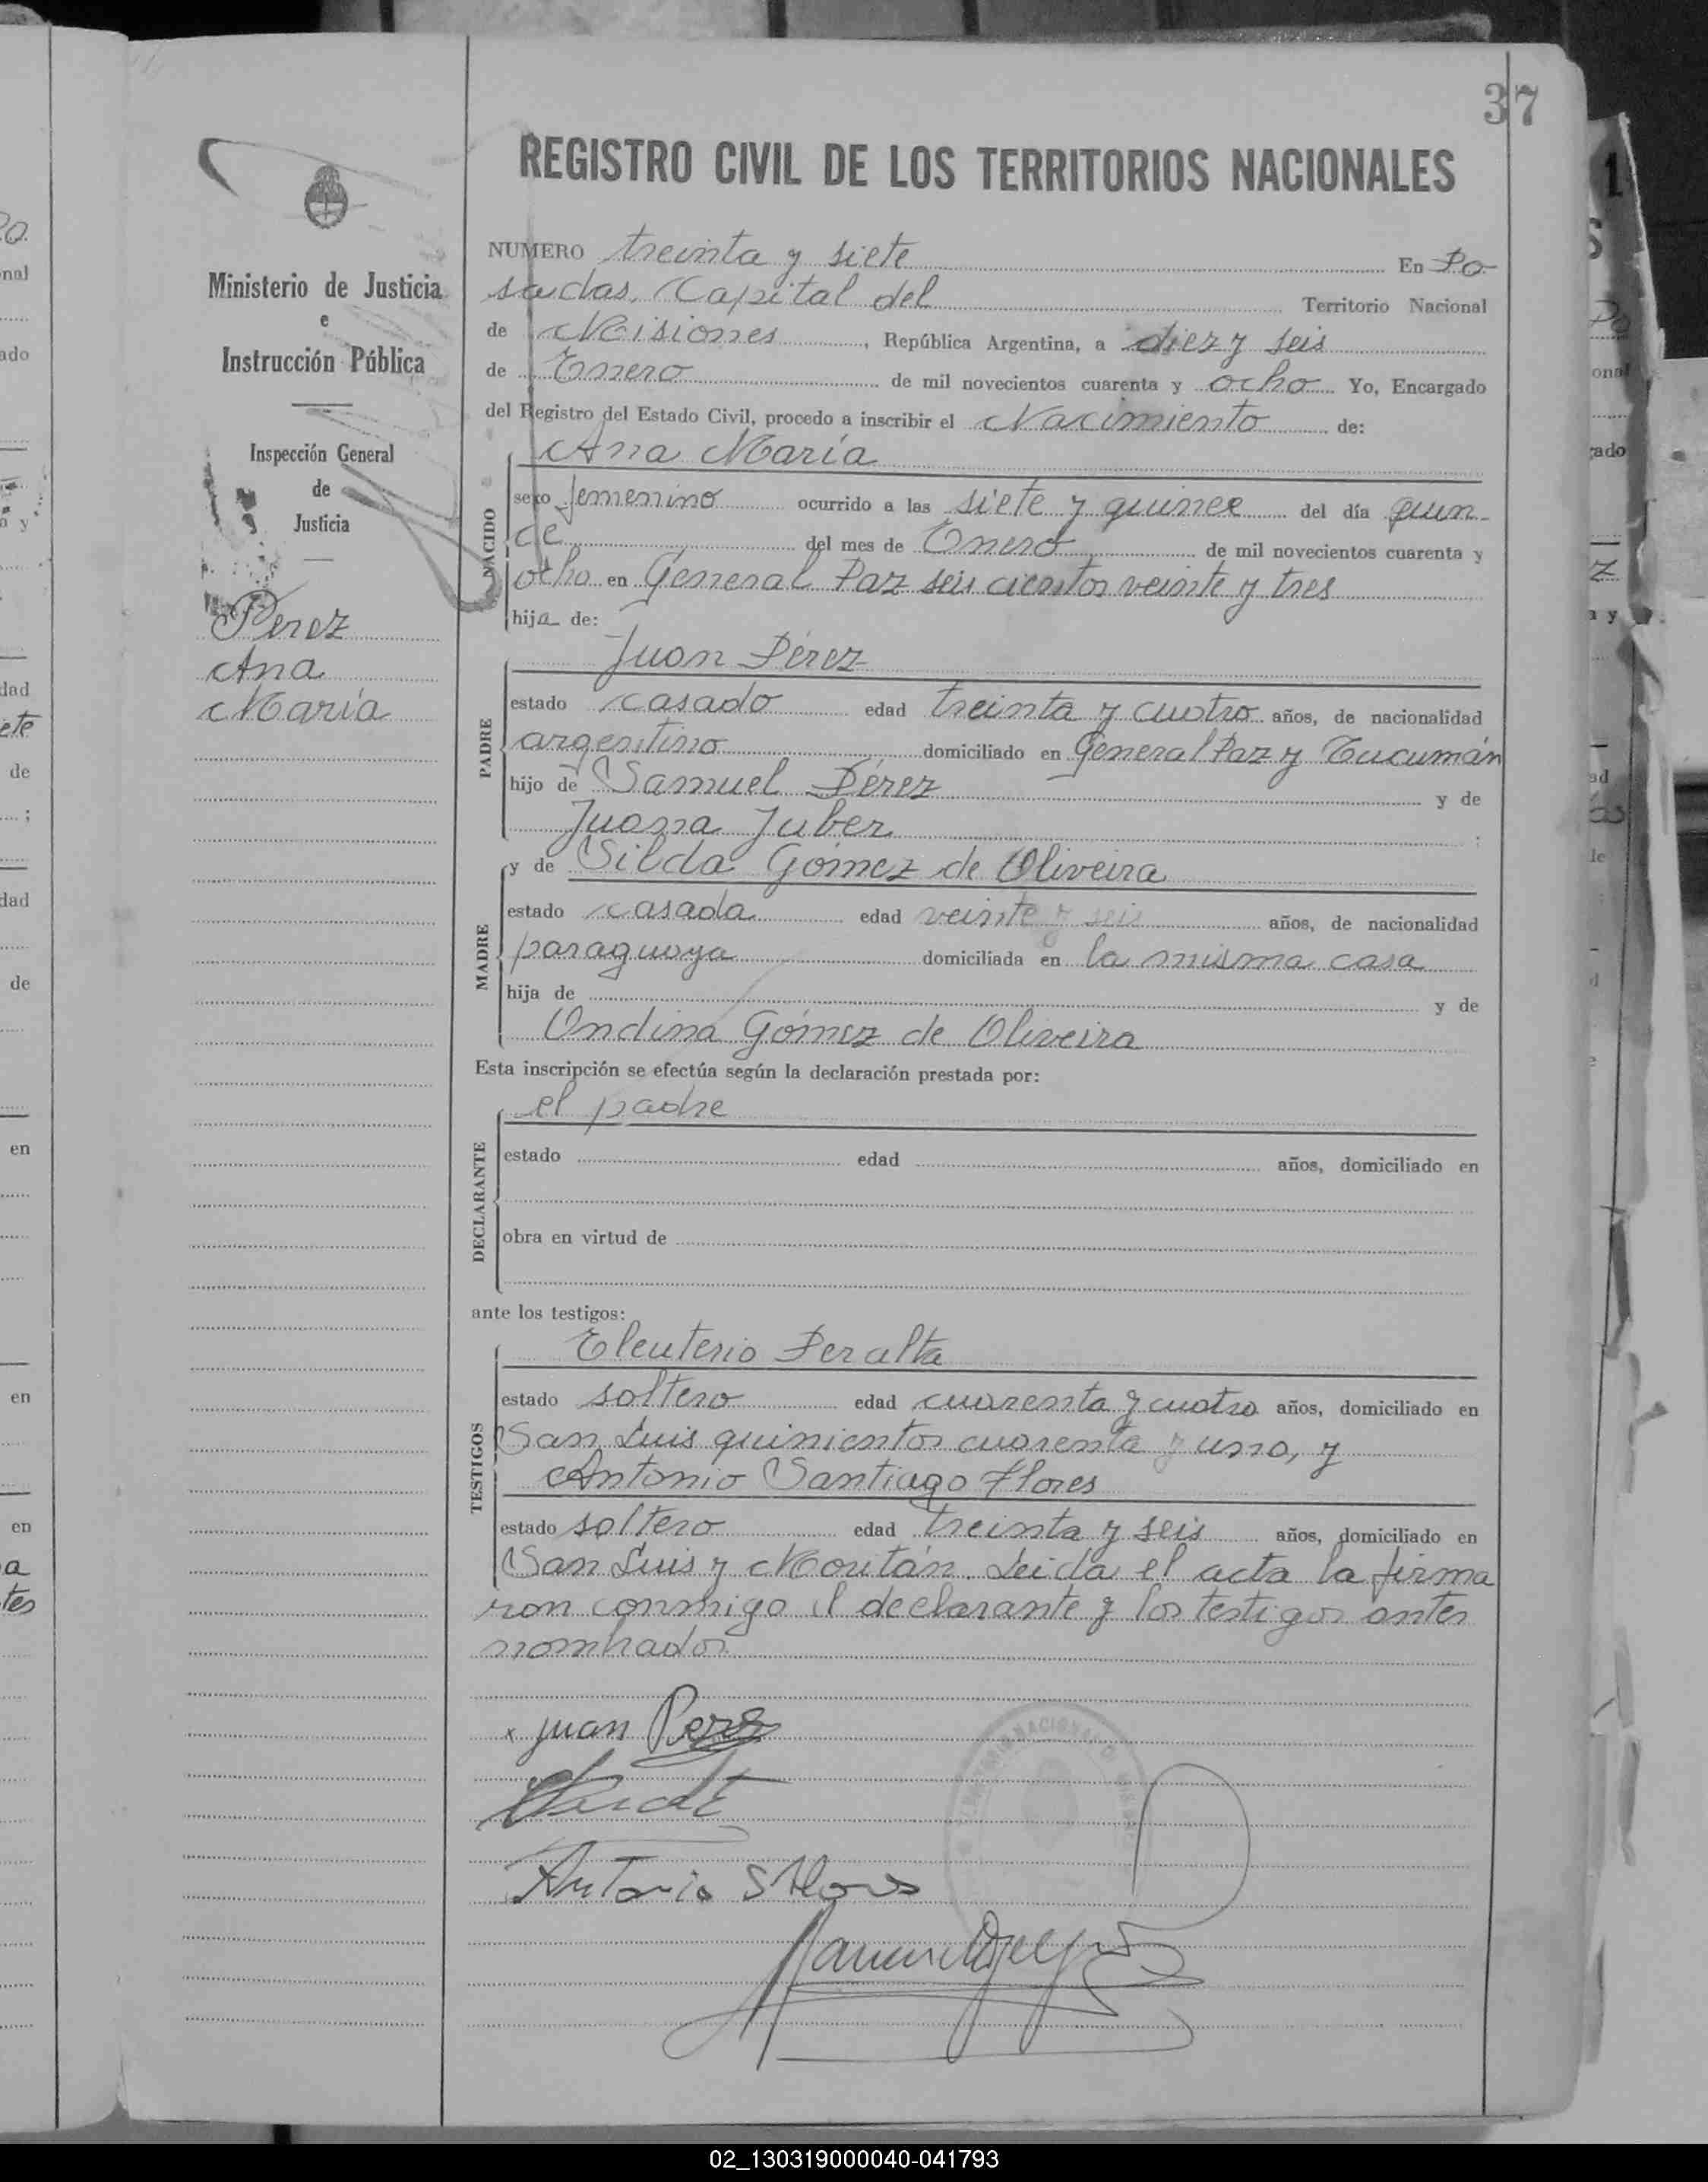 37
REGISTRO CIVIL DE LOS TERRITORIOS NACIONALES
Ministerio de Justicia
e
Instrucción Pública
Inspección General
de
Justicia
Pérez
Ana
María
NUMERO treinta y siete En Po-
sadas, Capital del Territorio Nacional
de Misiones, República Argentina, a diez y seis
de Enero de mil novecientos cuarenta y ocho Yo, Encargado
del Registro del Estado Civil, procedo a inscribir el Nacimiento de:
Ana María
NACIDO
sexo femenino ocurrido a las siete y quince del día quin-
ce del mes de Enero de mil novecientos cuarenta y
ocho en General Paz seis cientos veinte y tres
hija de:
Juan Pérez
PADRE
estado casado edad treinta y cuatro años, de nacionalidad
argentino domiciliado en General Paz y Tucumán
hijo de Samuel Pérez y de
Juana Juber
y de Silda Gómez de Oliveira
MADRE
estado casada edad veinte y seis años, de nacionalidad
paraguaya domiciliada en la misma casa
hija de y de
Ondina Gómez de Oliveira
Esta inscripción se efectúa según la declaración prestada por:
el padre
DECLARANTE
estado edad años, domiciliado en
obra en virtud de
ante los testigos:
Eleuterio Peralta
TESTIGOS
estado soltero edad cuarenta y cuatro años, domiciliado en
San Luis quinientos cuarenta y uno, y
Antonio Santiago Flores
estado soltero edad treinta y seis años, domiciliado en
San Luis y Moután. Leida el acta la firma
ron conmigo el declarante y los testigos antes
nombrados
x juan Perez
Antonio S Flores
02_130319000040-041793